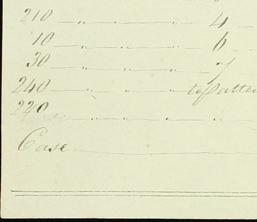 210 — " — " — " — 4
10 — " — " — " — 6
30 — " — " — " — 7
240 — " — " — " —
220 — " — " — " —
Case